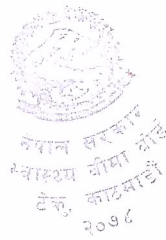 नेपाल सरकार
स्वास्थ्य बीमा बोर्ड
टेकु, काठमाडौं
२०७६